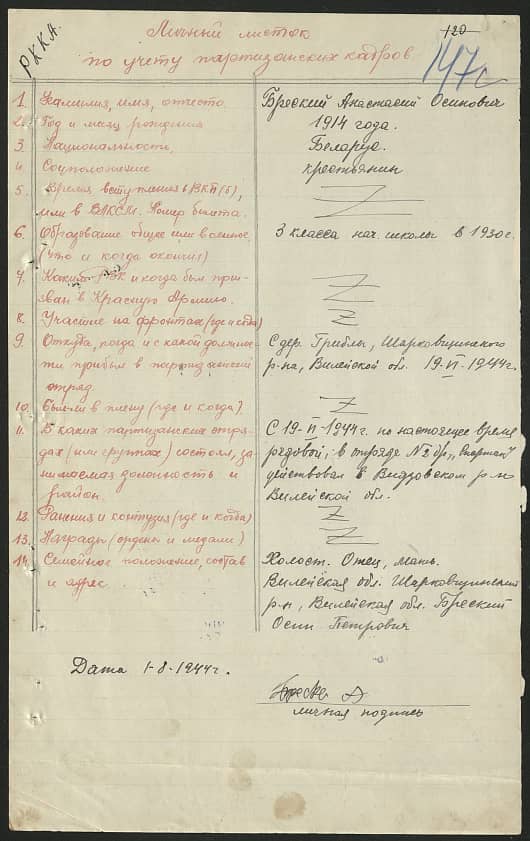 РККА.
120
147с
Личный листок
по учету партизанских кадров.
1. Фамилия, имя, отчество. Бреский Анастасий Осипович
2. Год и месяц рождения 1914 года.
3. Национальность. Беларус.
4. Соцположение крестьянин
5. Время вступления в ВКП(б),
или в ВЛКСМ. Номер билета.
6. Образование общее или военное, 3 класса нач. школы в 1930г.
(что и когда окончил)
7. Каким РВК и когда был при-
зван в Красную Армию.
8. Участие на фронтах (где и когда)
9. Откуда, когда и с какой должнос- С дер. Грибы, Шарковщинского
ти прибыл в партизанский р-на, Вилейской обл. 19-VI-1944г.
отряд.
10. Был ли в плену (где и когда?)
11. В каких партизанских отря- С 19-VI-1944г. по настоящее время
дах (или группах) состоял, за- рядовой, в отряде №2 бр. „Спартак"
нимаемая должность и действовал в Видзовском р-не
район. Вилейской обл.
12. Ранения и контузия (где и когда)
13. Награды (ордена и медали)
14. Семейное положение, состав Холост. Отец, мать.
и адрес. Вилейская обл. Шарковщинский
р-н, Вилейская обл. Бреский
Осип Петрович
Дата 1-8-1944г.
личная подпись